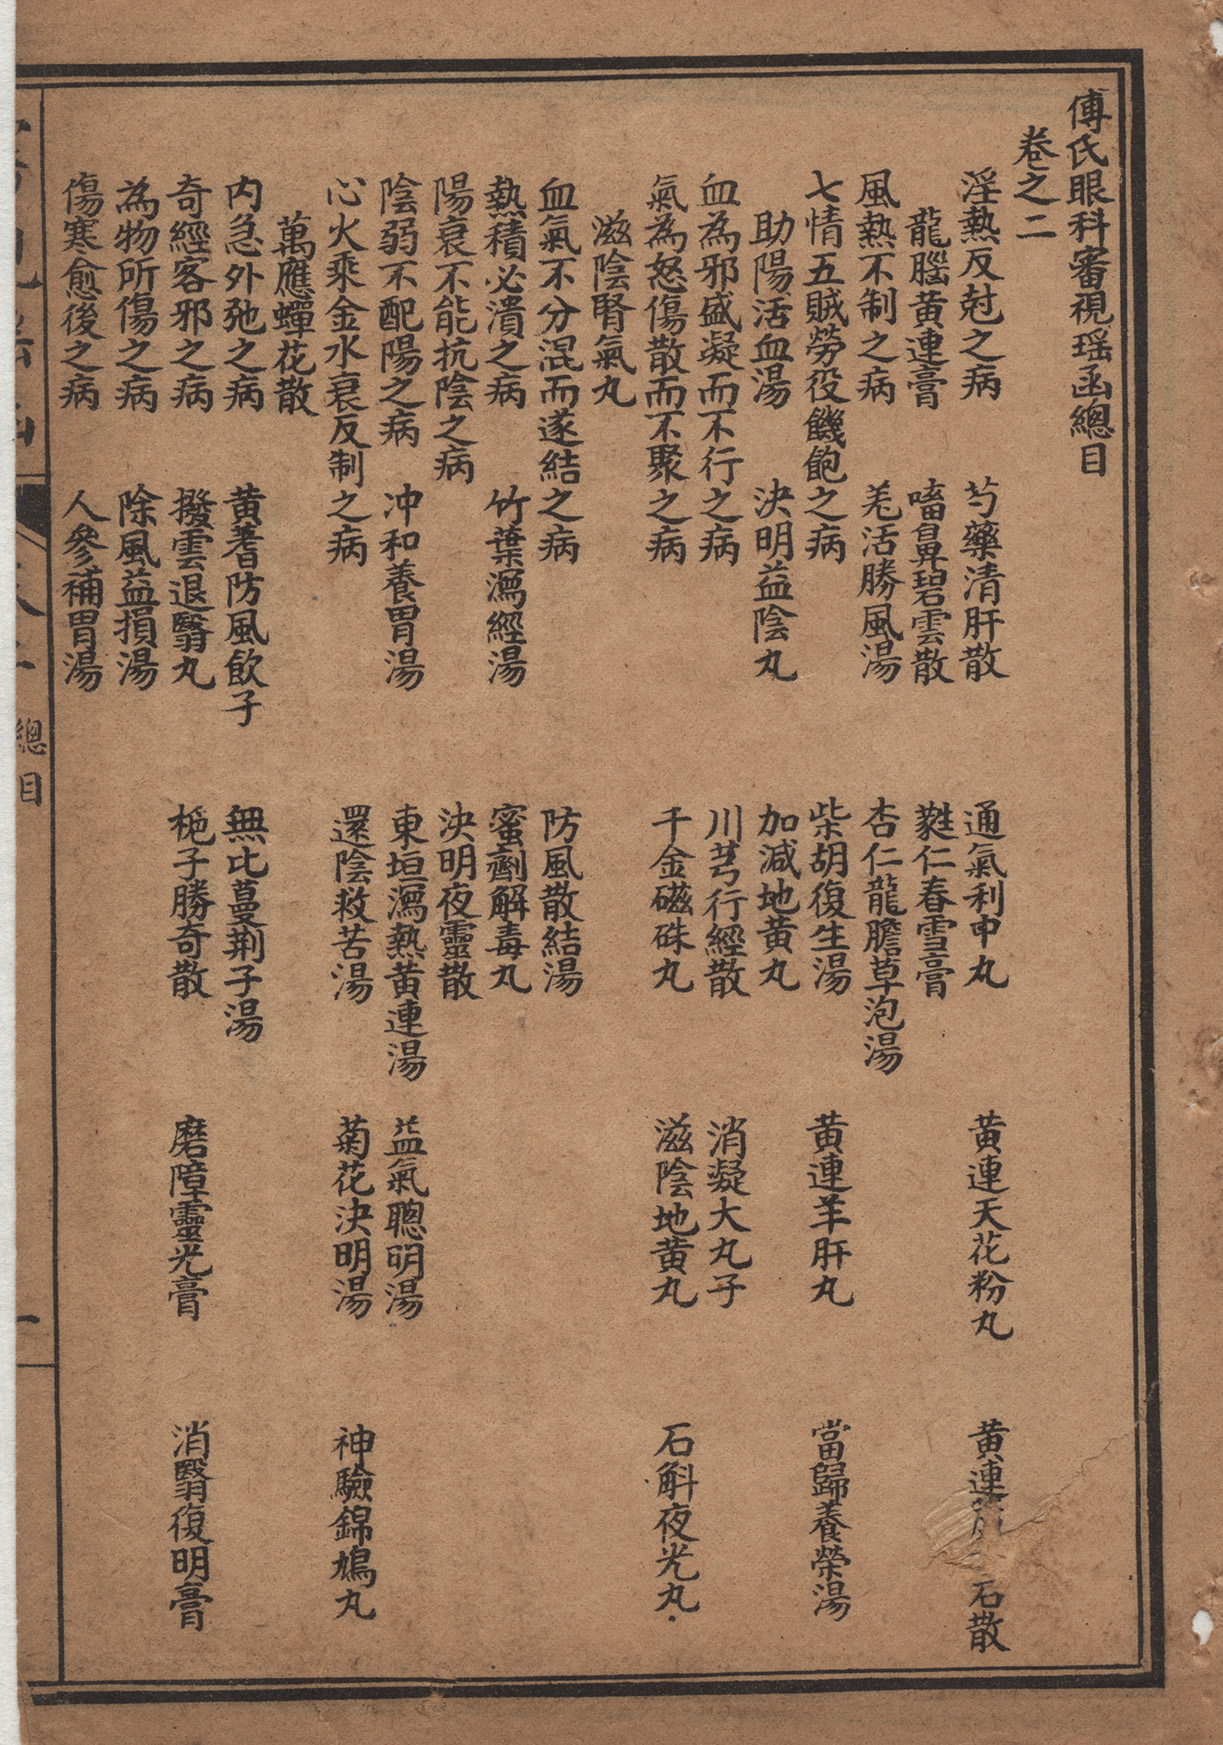 傅氏眼科審視瑶函總目
卷之二
淫熱反尅之病 芍藥清肝散 通氣利中丸 黄連天花粉丸 黄連 石散
龍腦黄連膏 㗜鼻碧雲散 蕤仁春雪膏
風熱不制之病 羌活勝風湯 杏仁龍膽草泡湯
七情五賊勞役饑飽之病 柴胡復生湯 黄連羊肝丸 當歸養榮湯
助陽活血湯 決明益陰丸 加減地黄丸
血為邪盛凝而不行之病 川芎行經散 消凝大丸子
氣為怒傷散而不聚之病 千金磁硃丸 滋陰地黄丸 石斛夜光丸
滋陰腎氣丸
血氣不分混而遂結之病 防風散結湯
熱積必潰之病 竹葉瀉經湯 蜜劑解毒丸
陽衰不能抗陰之病 決明夜靈散
陰弱不配陽之病 冲和養胃湯 東垣瀉熱黄連湯 益氣聰明湯
心火乘金水衰反制之病 還陰救苦湯 菊花決明湯 神驗錦鳩丸
萬應蟬花散
内急外弛之病 黄耆防風飲子 無比蔓荆子湯
奇經客邪之病 撥雲退翳丸 梔子勝奇散 磨障靈光膏 消翳復明膏
為物所傷之病 除風益損湯
傷寒愈後之病 人參補胃湯
總目
一